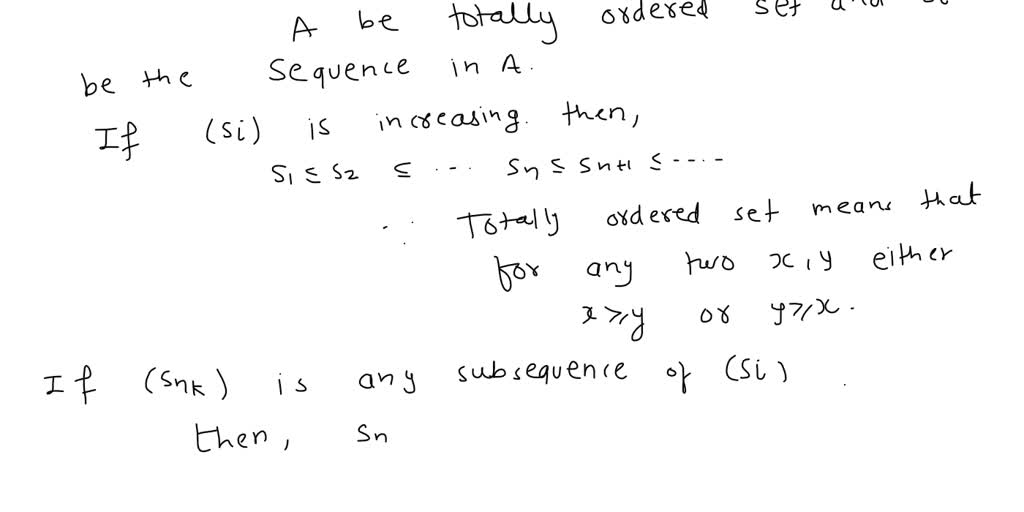 A be totally ordered set and
be the sequence in A.
If (si) is increasing. then,
s1 ≤ s2 ≤ --- sn ≤ sn+1 ≤ ----
∵ Totally ordered set means that
for any two x, y either
x ≥ y or y ≥ x.
If (snk) is any subsequence of (si)
then, sn